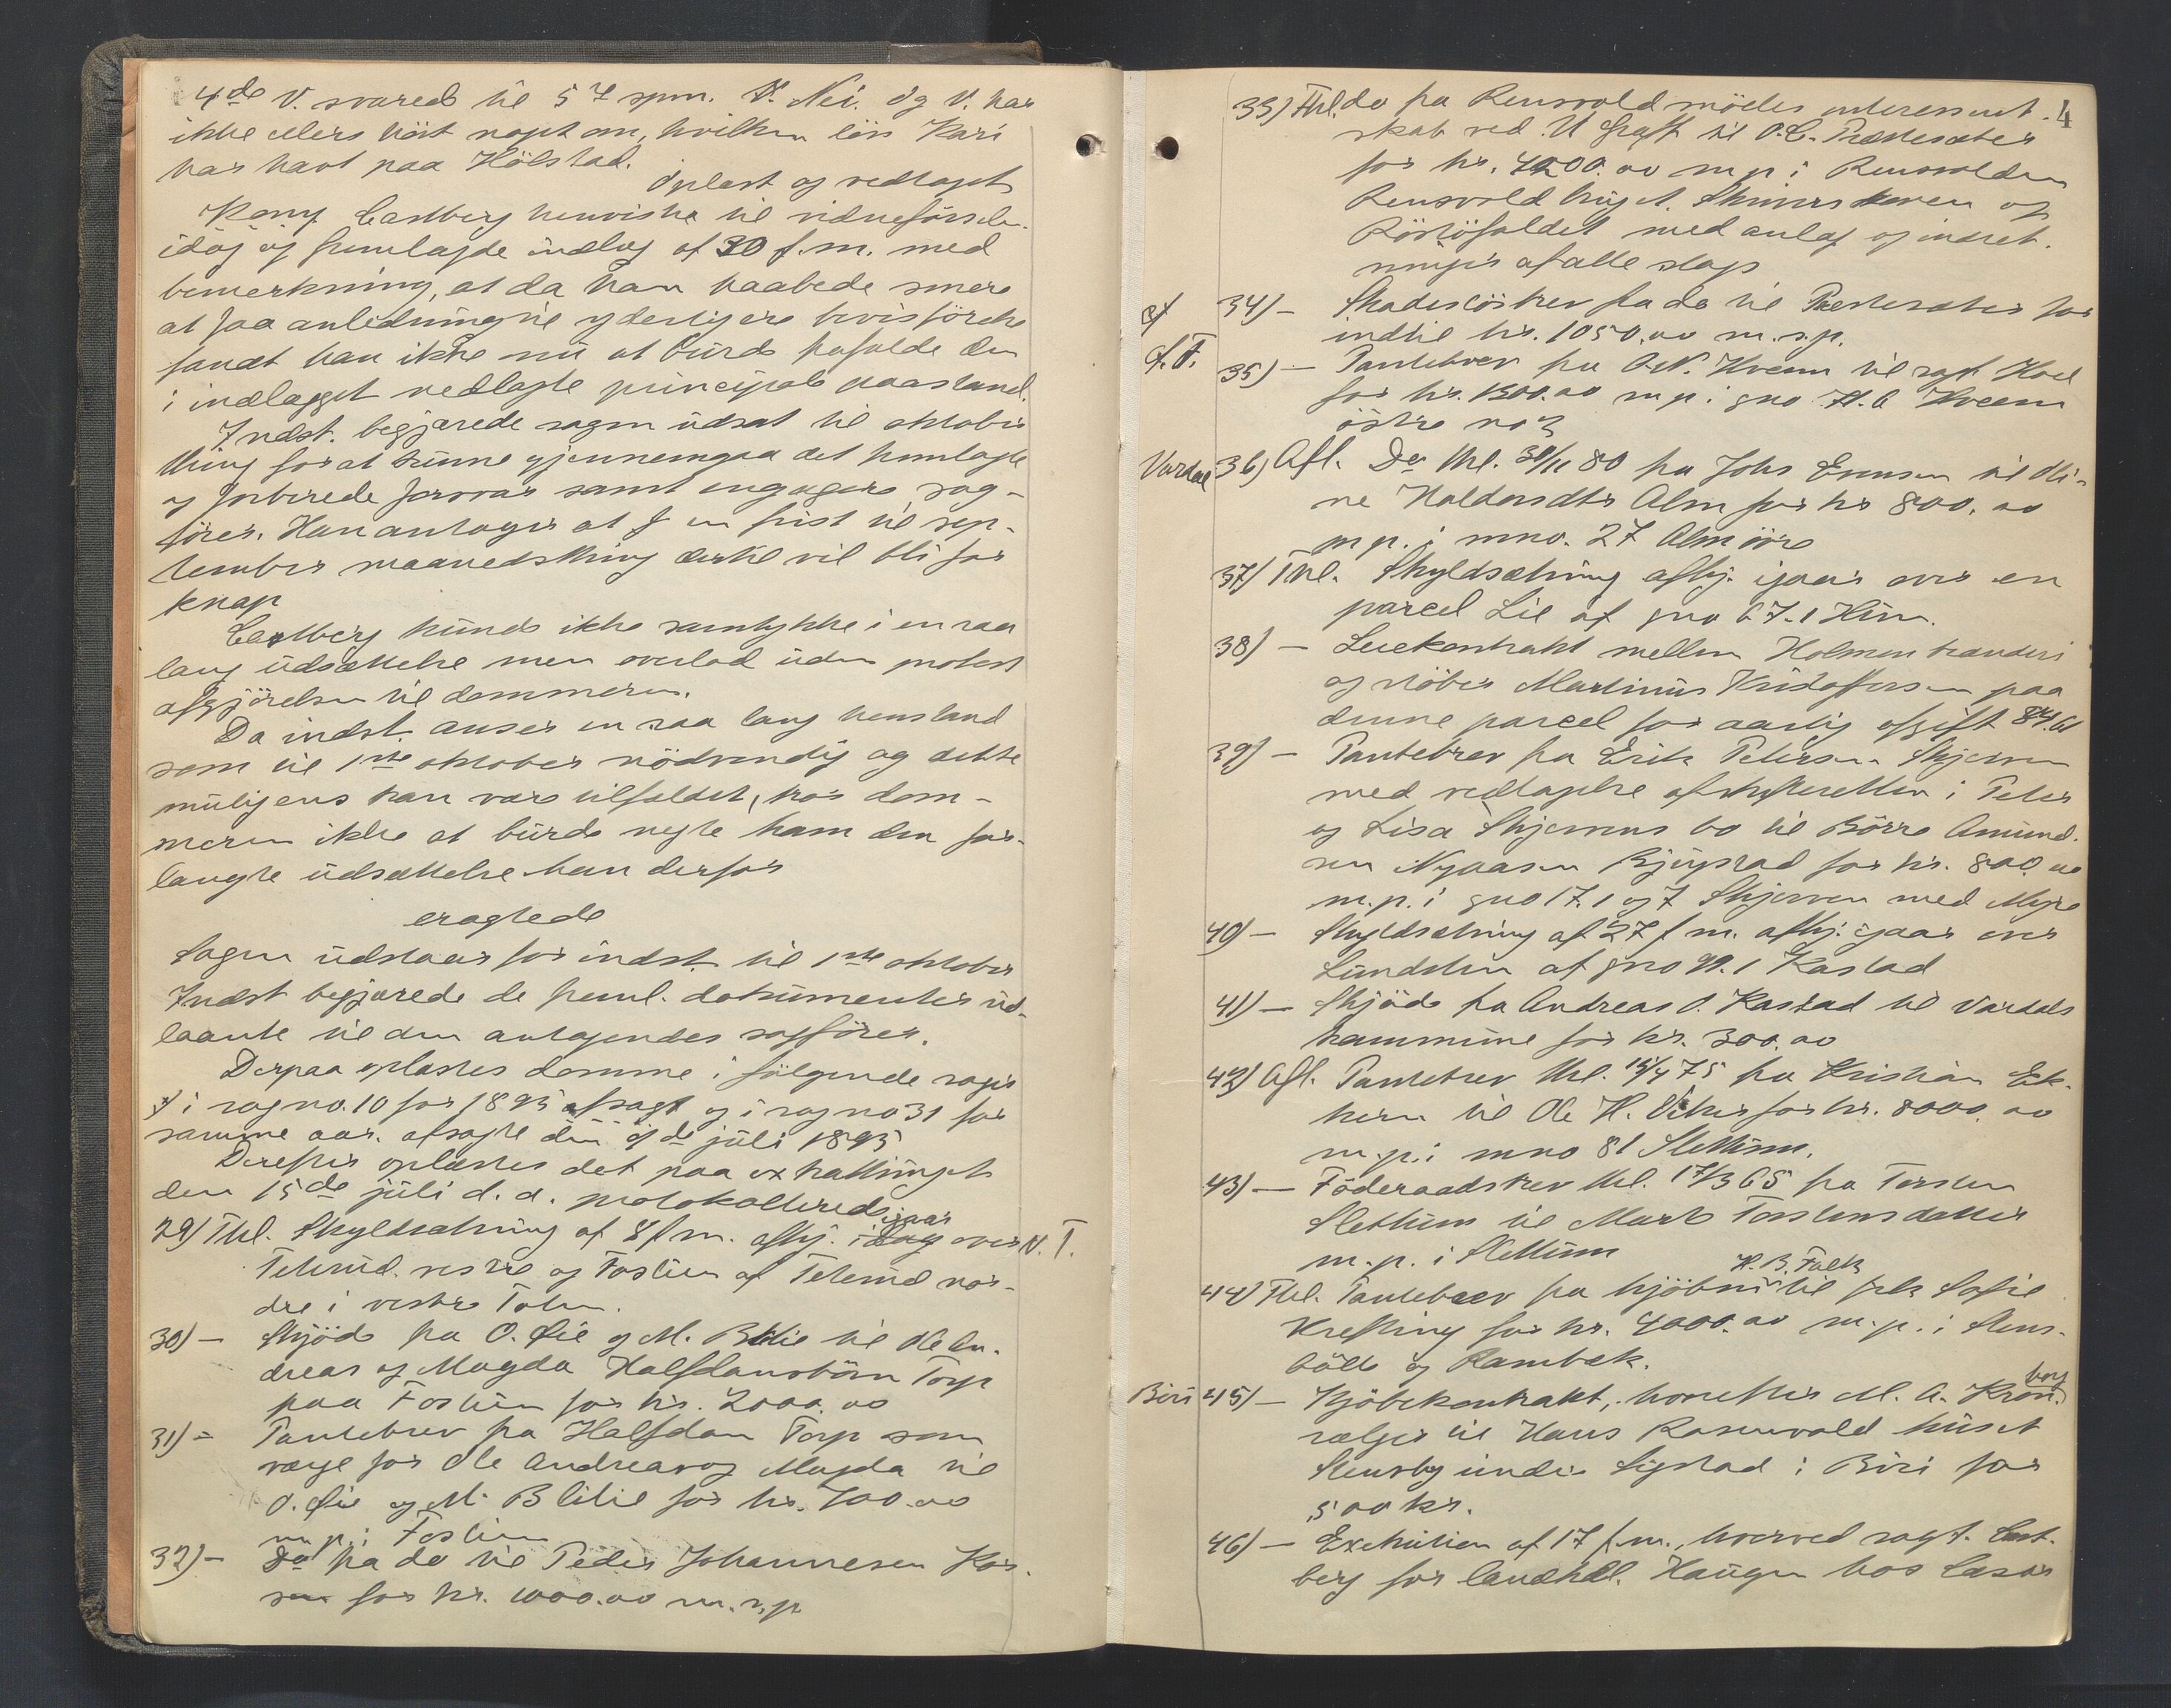 4de V. svarede til 5 & 7 spm. V. Nei. Og V. har
ikke ellers hört noget om, hvilken lön Kari
har havt paa Hölstad.
Oplæst og vedtaget
Castberg henviste til vidneförselen
idag og fremlagde indlæg af 30 f.m. med
bemerkning, at da han haabede senere
at faa anledning til yderligere bevisförelse
fandt han ikke nu at burde frafalde den
i indlægget nedlagte principale paastand.
Indst. begjærede sagen udsat til oktober
thing for at kunne gjennemgaa det fremlagte
og forberede forsvar samt engagere sag-
förer. Han antager at en frist til sep-
tember maanedsthing dertil vil bli for
knap
Castberg kunde ikke samtykke i en saa
lang udsættelse men overlod uden protest
afgjörelsen til dommeren.
Da indst. anser en saa lang henstand
som til 1ste oktober nödvendig og dette
muligens kan være tilfældet, tror dom-
meren ikke at burde negte ham den for-
langte udsættelse han derfor
eragtede
Sagen udstaar for indst. til 1ste oktober
Indst begjærede de freml. dokumenter ud-
laante til den antagendes sagförer.
Derpaa oplæstes domme i fölgende sager
i sag no. 10 for 1895 afsagt og i sag no 31 for
samme aar. afsagte den de juli 1895
Derefter oplæstes det paa extrathinget
den 15de juli d. a. protokollerede
29) Thl. Skyldsætning af 8 f.m. afhj. idag igaar over V. T.
Teterud vestre og Foslien af Teterud nor-
dre i vestre Toten.
30) — Skjöde fra O. Lie og M. Blilie til Ole An-
dreas og Magda Halfdansbörn Torp
paa Foslien for kr. 2000.00
31) — Pantebrev fra Halfdan Torp som
værge for Ole Andreas og Magda til
O. Lie og M. Blilie for kr. 700.00
m. p. i Foslien
32) — Do fra do til Peder Johannesen Kor-
sen for kr. 1000.00 m. s. p.
4
33) Thl. do fra Rensvold möders interessent-
skab ved til O. C. Præstesæter
for kr. 4200.00 m p i Rensvolden
Rensvold bruget. Skinnerskoven og
med anlæg og indret-
ninger af alle slags
34) — Skadeslösbrev fra do til Præstesæter for
indtil kr. 1050.00 m. s. p.
35) — Pantebrev fra O. N. Kveem til sagf. Hoel
for kr. 1300.00 m p. i gno Kveem
östre no 3
Vardal 36) Afl. Do thl. 30/11 80 fra Johs Evensen til Oli-
ne Haldorsdtr Alm for kr 800.00
m p. i mno. 27 Alm övre
37) Thl. Skyldsætning afhj. igaar over en
parcel Lie af gno 67.1 Hun.
38) — Leiekontrakt mellem Holmen brænderi
og stöber Martinus Kristoffersen paa
denne parcel for aarlig afgift
39) — Pantebrev fra Erik Petersen Skjerven
med vedtagelse af skifteretten i Peter
og Lisa Skjervens bo til Börre Amund-
sen Nyaasen Bjugstad for kr. 800.00
m. p. i gno 17.1 og 7 Skjerven med Myre
40) — Skyldsætning af 27 f m. afhj. igaar over
Lundsten af gno 99.1 Kastad
41) — Skjöde fra Andreas O. Kastad til Vardals
kommune for kr. 300.00
42) Afl. Pantebrev thl. 15/4 75 fra Kristian Ek-
hern til Ole H. Viker for kr. 8000.00
m. p. i mno 81 Slettum.
43) — Föderaadsbrev thl. 17/3 65 fra Torsten
Slettum til Marte Torstensdatter
m. p. i Slettum
44) Thl. Pantebrev fra kjöbm. H. B. Falk til frk Sofie
Krefting for kr. 4000.00 m. p. i Stens-
balle og Rambæk.
Biri 45) — Kjöbekontrakt, hvorefter M. A. Kronborg
sælger til Hans Rosenvold huset
Stensby under Sigstad i Biri for
500 kr.
46) — Exekution af 17 f.m., hvorved sagf. Cast-
berg for landhdl. Haugen hos Lasse